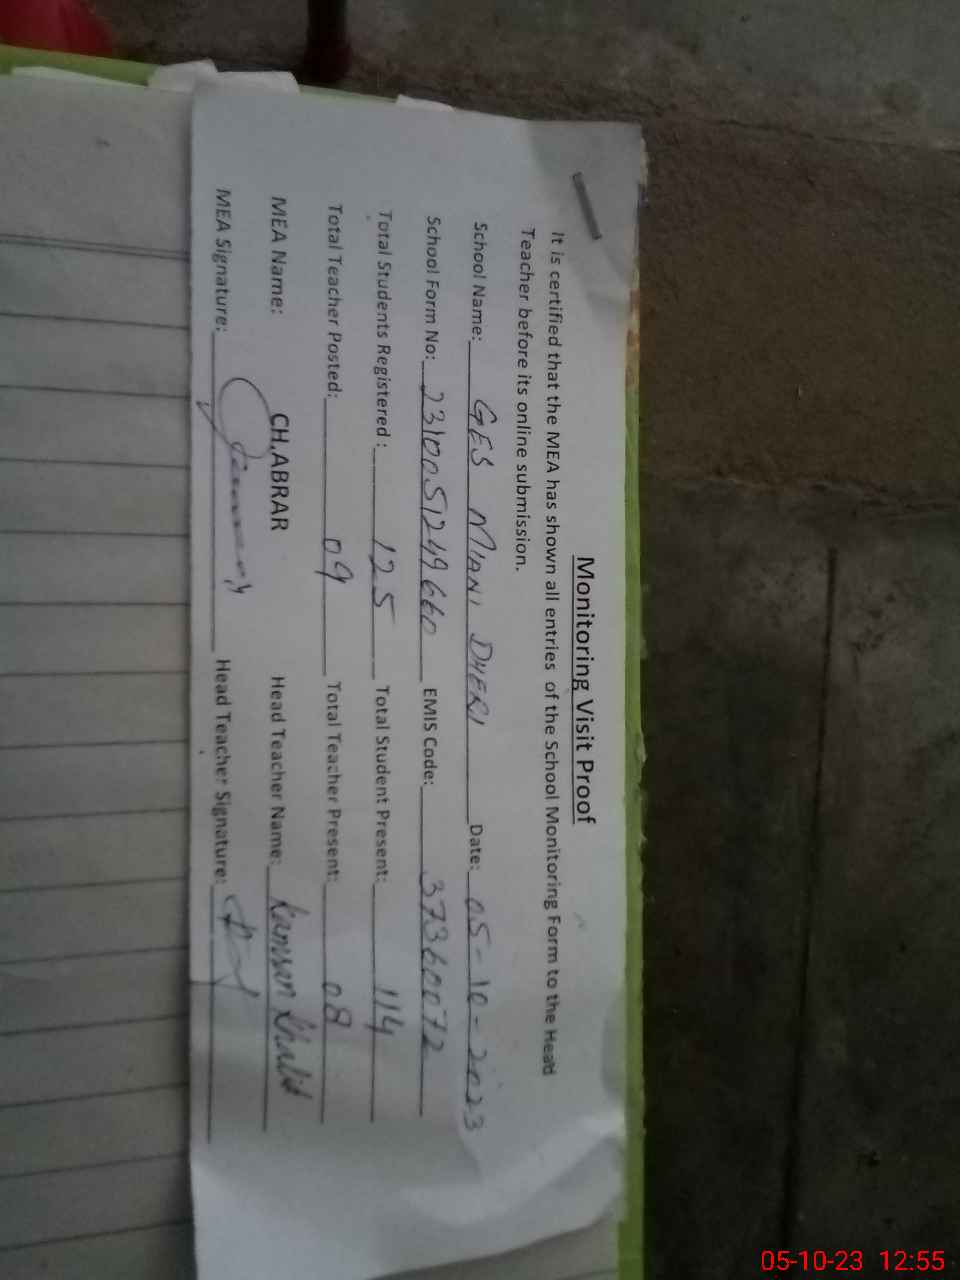 Monitoring Visit Proof
It is certified that the MEA has shown all entries of the School Monitoring Form to the Head
Teacher before its online submission.
School Name: GES MIANI DHERI Date: 05-10-2023
School Form No: 2310051249660 EMIS Code: 37360072
Total Students Registered : 125 Total Student Present: 114
Total Teacher Posted: 09 Total Teacher Present: 08
MEA Name: CH,ABRAR Head Teacher Name: Kamran Khalid
MEA Signature: Head Teacher Signature:
05-10-23 12:55